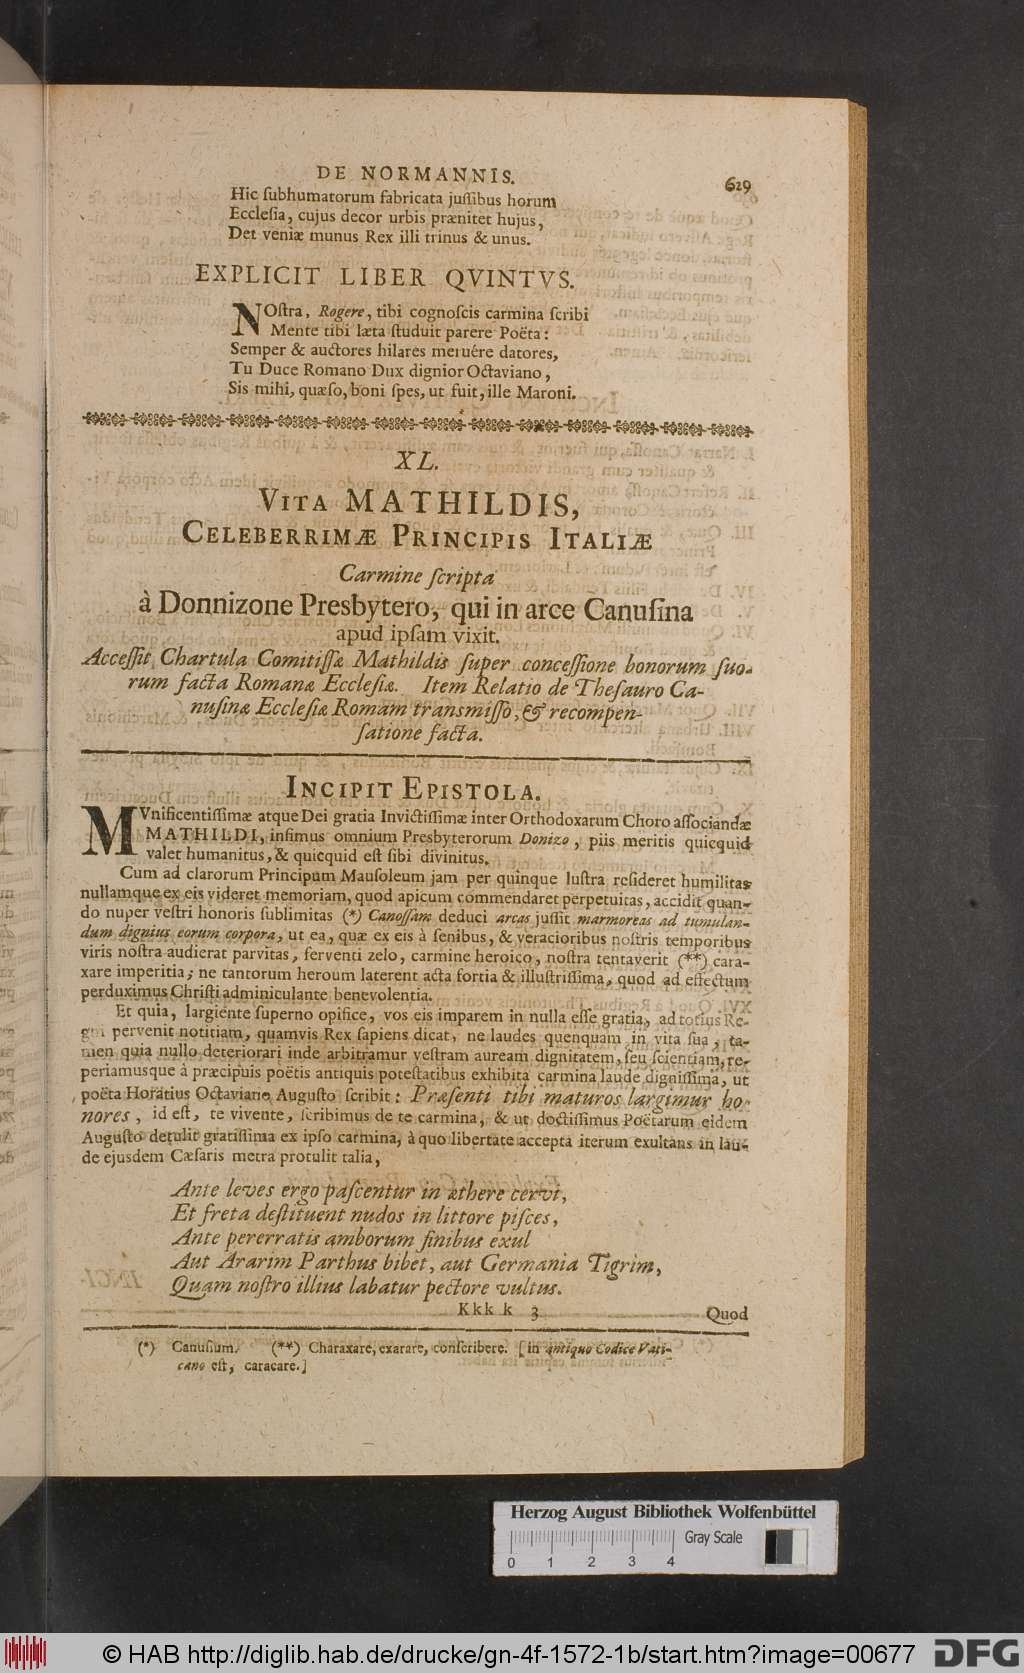 DE NORMANNIS.
629
Hic ſubhumatorum fabricata juſſibus horum
Eccleſia, cujus decor urbis prænitet hujus,
Det veniæ munus Rex illi trinus & unus.
EXPLICIT LIBER QVINTVS.
NOſtra, Rogere, tibi cognoſcis carmina ſcribi
Mente tibi læta ſtuduit parere Poëta:
Semper & auctores hilares meruére datores,
Tu Duce Romano Dux dignior Octaviano,
Sis mihi, quæſo, boni ſpes, ut fuit, ille Maroni.
XL.
VITA MATHILDIS,
CELEBERRIMÆ PRINCIPIS ITALIÆ
Carmine ſcripta
à Donnizone Presbytero, qui in arce Canuſina
apud ipſam vixit.
Acceſſit Chartula Comitiſſæ Mathildis ſuper conceſſione bonorum ſuo-
rum facta Romanæ Eccleſiæ. Item Relatio de Theſauro Ca-
nuſinæ Eccleſiæ Romam transmiſſo, & recompen-
ſatione facta.
INCIPIT EPISTOLA.
MVnificentiſſimæ atque Dei gratia Invictiſſimæ inter Orthodoxarum Choro aſſociandæ
MATHILDI, infimus omnium Presbyterorum Donizo, piis meritis quicquid
valet humanitus, & quicquid eſt ſibi divinitus.
Cum ad clarorum Principum Mauſoleum jam per quinque luſtra reſideret humilitas
nullamque ex eis videret memoriam, quod apicum commendaret perpetuitas, accidit quan-
do nuper veſtri honoris ſublimitas (*) Canoſſam deduci arcas juſſit marmoreas ad tumulan-
dum dignius eorum corpora, ut ea, quæ ex eis à ſenibus, & veracioribus noſtris temporibus
viris noſtra audierat parvitas, ferventi zelo, carmine heroico, noſtra tentaverit (**) cara-
xare imperitia; ne tantorum heroum laterent acta fortia & illuſtriſſima, quod ad effectum
perduximus Chriſti adminiculante benevolentia.
Et quia, largiente ſuperno opifice, vos eis imparem in nulla eſſe gratia, ad totius Re-
gni pervenit notitiam, quamvis Rex ſapiens dicat, ne laudes quenquam in vita ſua, ta-
men quia nullo deteriorari inde arbitramur veſtram auream dignitatem, ſeu ſcientiam, re-
periamusque à præcipuis poëtis antiquis poteſtatibus exhibita carmina laude digniſſima, ut
poëta Horatius Octaviano Auguſto ſcribit: Præſenti tibi maturos largimur ho-
nores, id eſt, te vivente, ſcribimus de te carmina, & ut doctiſſimus Poëtarum eidem
Auguſto detulit gratiſſima ex ipſo carmina, à quo libertate accepta iterum exultans in lau-
de ejusdem Cæſaris metra protulit talia,
Ante leves ergo paſcentur in æthere cervi,
Et freta deſtituent nudos in littore piſces,
Ante pererratis amborum finibus exul
Aut Ararim Parthus bibet, aut Germania Tigrim,
Quam noſtro illius labatur pectore vultus.
Kkk k 3
Quod
(*) Canuſium. (**) Charaxare, exarare, conſcribere. [in antiquo Codice Vati-
cano eſt, caracare.]
Herzog August Bibliothek Wolfenbüttel
Gray Scale
0 1 2 3 4
© HAB http://diglib.hab.de/drucke/gn-4f-1572-1b/start.htm?image=00677
DFG